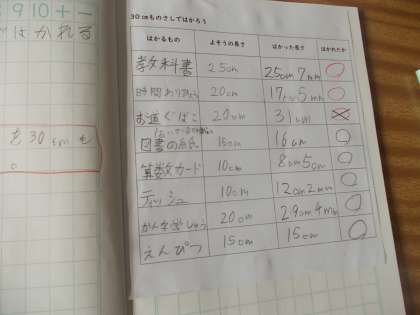 910+-
はかれる
を30cmも
。
30cmものさしではかろう
はかるもの よそうの長さ はかった長さ はかれたか
教科書 25cm 25cm7mm ○
時間わりちょう 20cm 17cm5mm ○
お道ぐばこ 20cm 31cm ×
図書の 15cm 16cm ○
算数カード 10cm 8cm5cm ○
ティッシュ 10cm 12cm2mm ○
かん字学しゅう 20cm 29cm4mm ○
えんぴつ 15cm 15cm ○